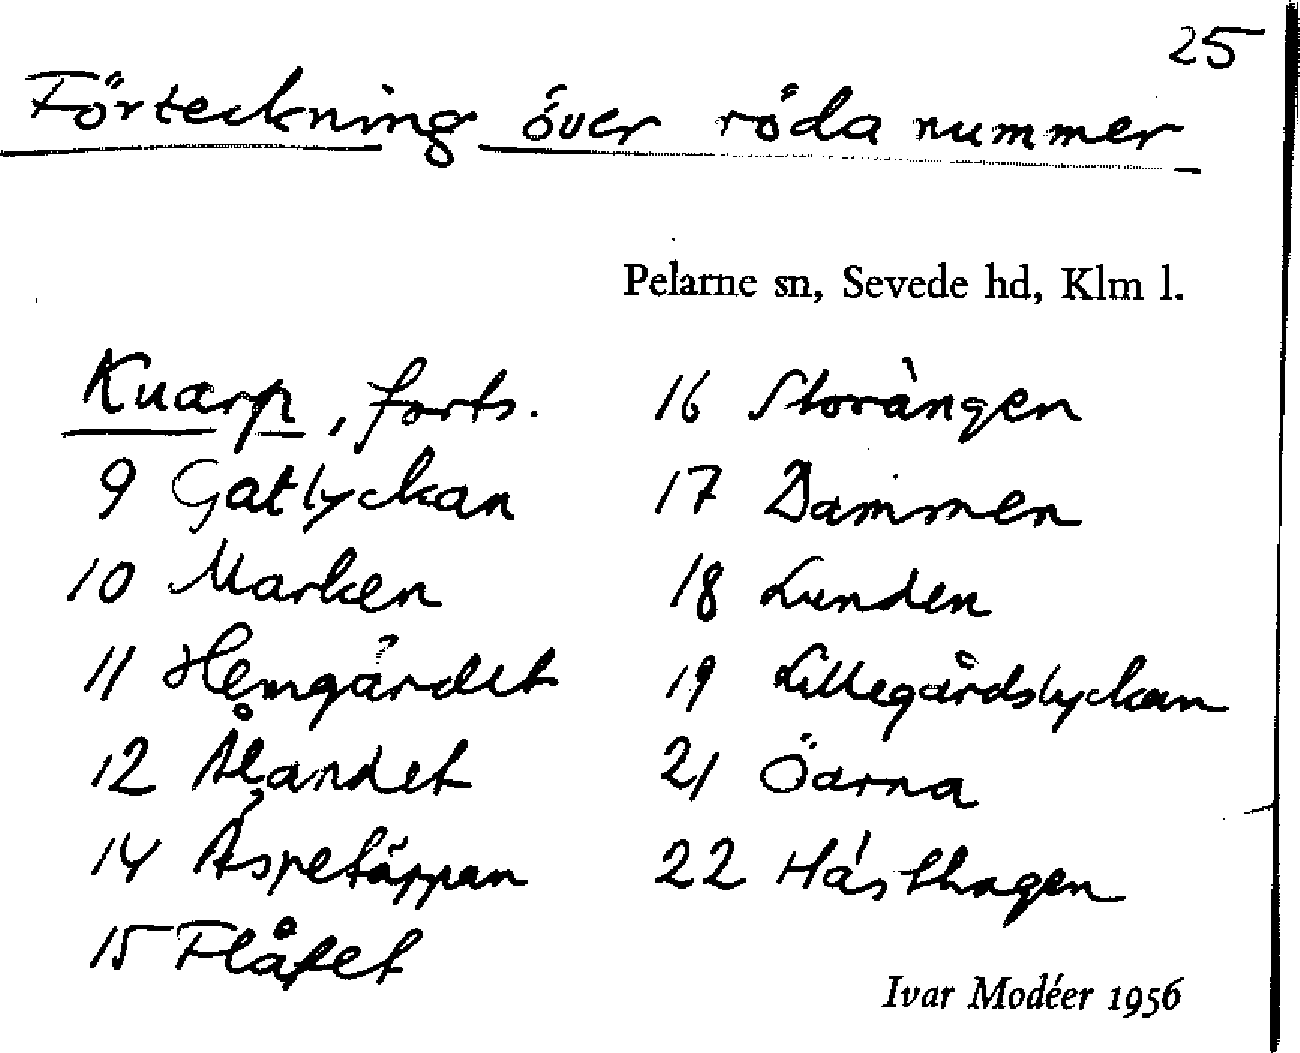 25
Förteckning över röda nummer
Pelarne sn, Sevede hd, Klm l.
Kvarp, forts.
9 Gatlyckan
10 Marken
11 Hemgärdet
12 Ålandet
14 Aspetäppan
15 Flåfet
16 Storängen
17 Dammen
18 Lunden
19 Lillegårdslyckan
21 Öarna
22 Hästhagen
Ivar Modéer 1956